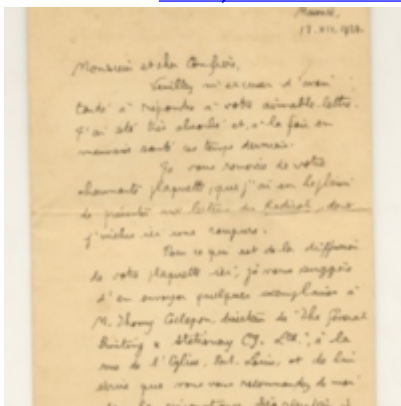 Maurice,
17.XII.1924.
Monsieur et cher Confrère,
Veuillez m'excuser d'avoir
tardé à répondre à votre aimable lettre.
J'ai été très absorbé et, à la fois, en
mauvaise santé ces temps derniers.
Je vous remercie de votre
charmante plaquette, que j'ai eu le plaisir
de présenter aux lecteurs du Radical, dont
j'inclus ici une coupure.
Pour ce qui est de la diffusion
de votre plaquette ici, je vous suggère
d'en envoyer quelques exemplaires à
M. Thomy Esclapon, directeur de "The General
Printing & Stationery Cy. Ltd.", à la
rue de l'Eglise, Port-Louis, et de lui
écrire que vous vous recommandez de moi